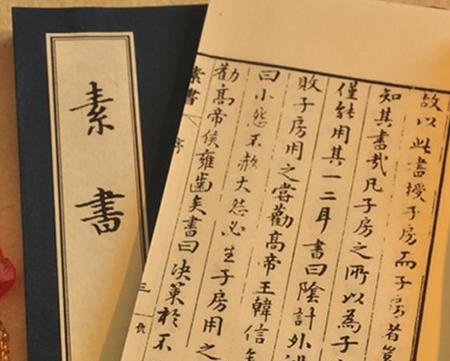 故以此書授子房而子房者豈
知其書哉凡子房之所以為子
僅能用其一二耳書曰陰計外
敗子房用之嘗勸高帝王韓信
曰小怨不赦大怨必生子房用之
勸高帝侯雍齒矣書曰決策於不
素書 序 三
素書